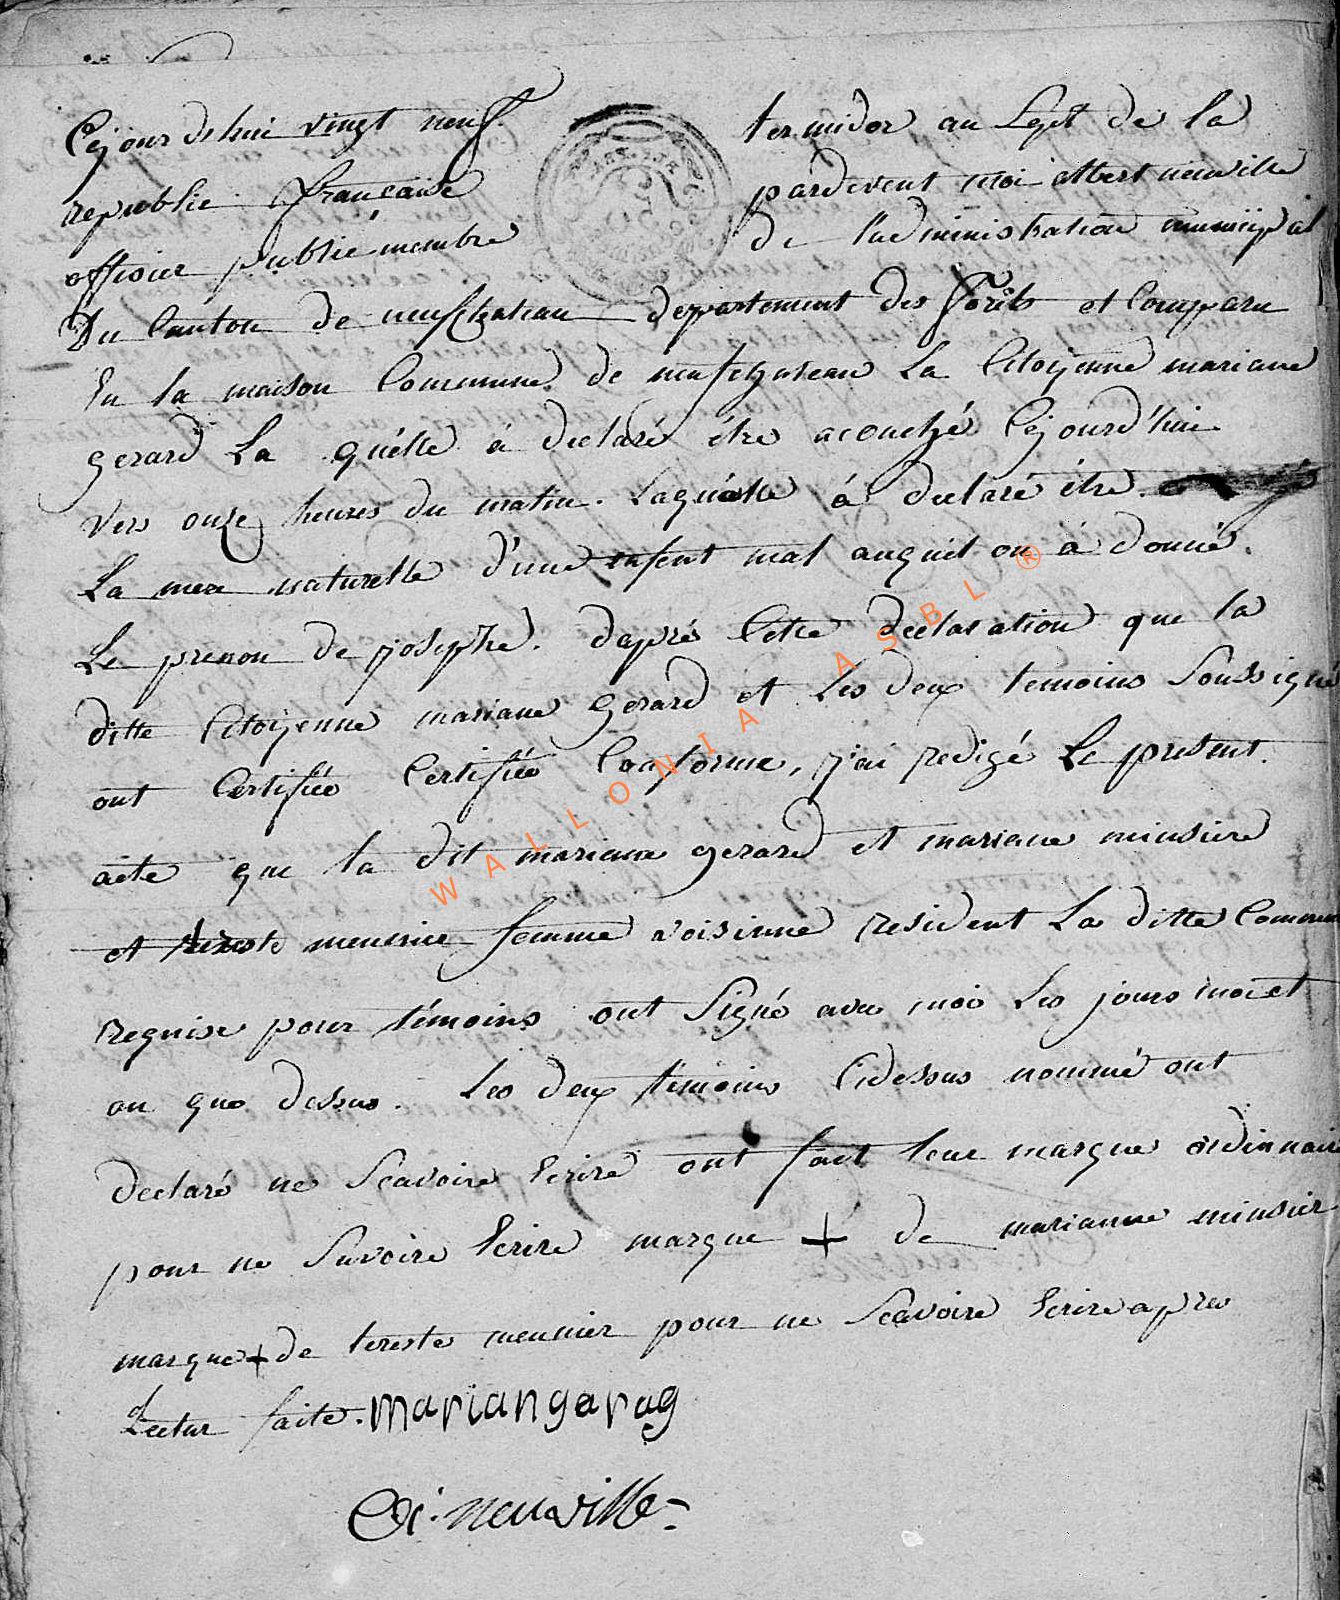 Cejourdhui vingt neuf termidor an Sept de la
republic française pardevent moi albert neuville
offisier public membre de l'administration municipal
Du Canton de neufchateau departement des Forêts et Comparu
En la maison Commune de neufchateau La Citoyenne mariane
gerard La quélle à declaré étre acouché Cejourd'hui
vers onze heures du matin. Laquélle à declaré étre
La mere naturelle d'une enfent mal auquél on à donné
Le prenon de josephe. dapré Cette declaration que la
ditte Citoyenne mariane gerard et Les deux temoins Soussigné
ont Certifiée Certifiée Conforme, j'ai redigé Le present
acte que la dit mariane gerard et mariane minsiere
et tereste meunier femme voisinne resident La ditte Commun
requise pour témoins ont Signé avec moi Les jours moi et
an que dessus. Les deux temoins Cidessus nommé ont
declaré ne Scavoire Ecrire ont fait leur marque ordinnaire
pour ne Savoire Ecrire marque + de marianne minsier
marque + de tereste meunier pour ne Scavoire Ecrire apres
Lectur faite. mariangarag
neuville
WALLONIA ASBL ®